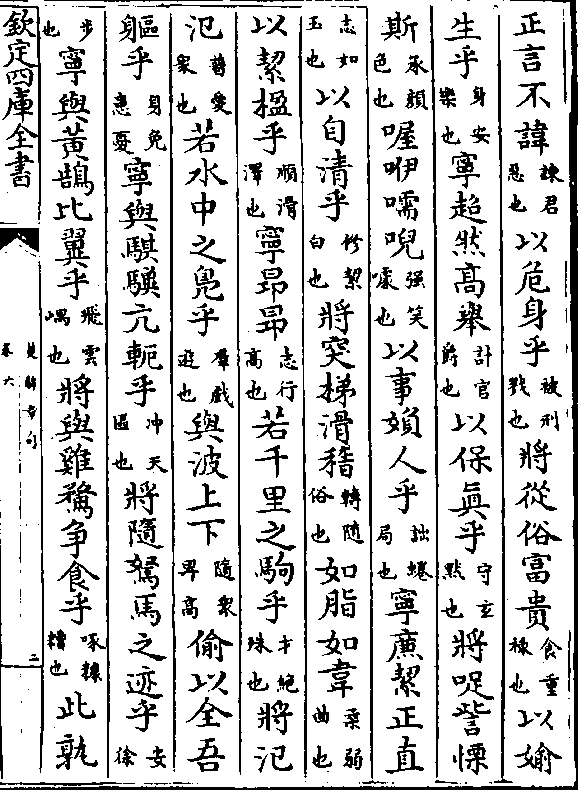 正言不諱諫君惡也以危身乎被刑戮也將從俗富貴食重祿也以媮
生乎身安樂也寧超然髙舉計官爵也以保真乎守玄黙也將哫訾慄
斯承顔色也喔咿嚅唲强笑噱也以事媍人乎詘蜷局也寧廉絜正直
志如玉也以自清乎修絜白也將突梯滑稽轉隨俗也如脂如韋柔弱曲也
以絜楹乎順滑澤也寧昂昂志行高也若千里之駒乎才絶殊也將氾
氾普愛衆也若水中之鳬乎羣戲遊也與波上下隨衆卑高偷以全吾
軀乎身免患憂寧與騏驥亢軛乎冲天區也將隨駑馬之迹乎安徐
步也寧與黄鵠比翼乎飛雲嵎也將與雞鶩争食乎啄糠糟也此孰
欽定四庫全書
楚辭章句
卷六
二